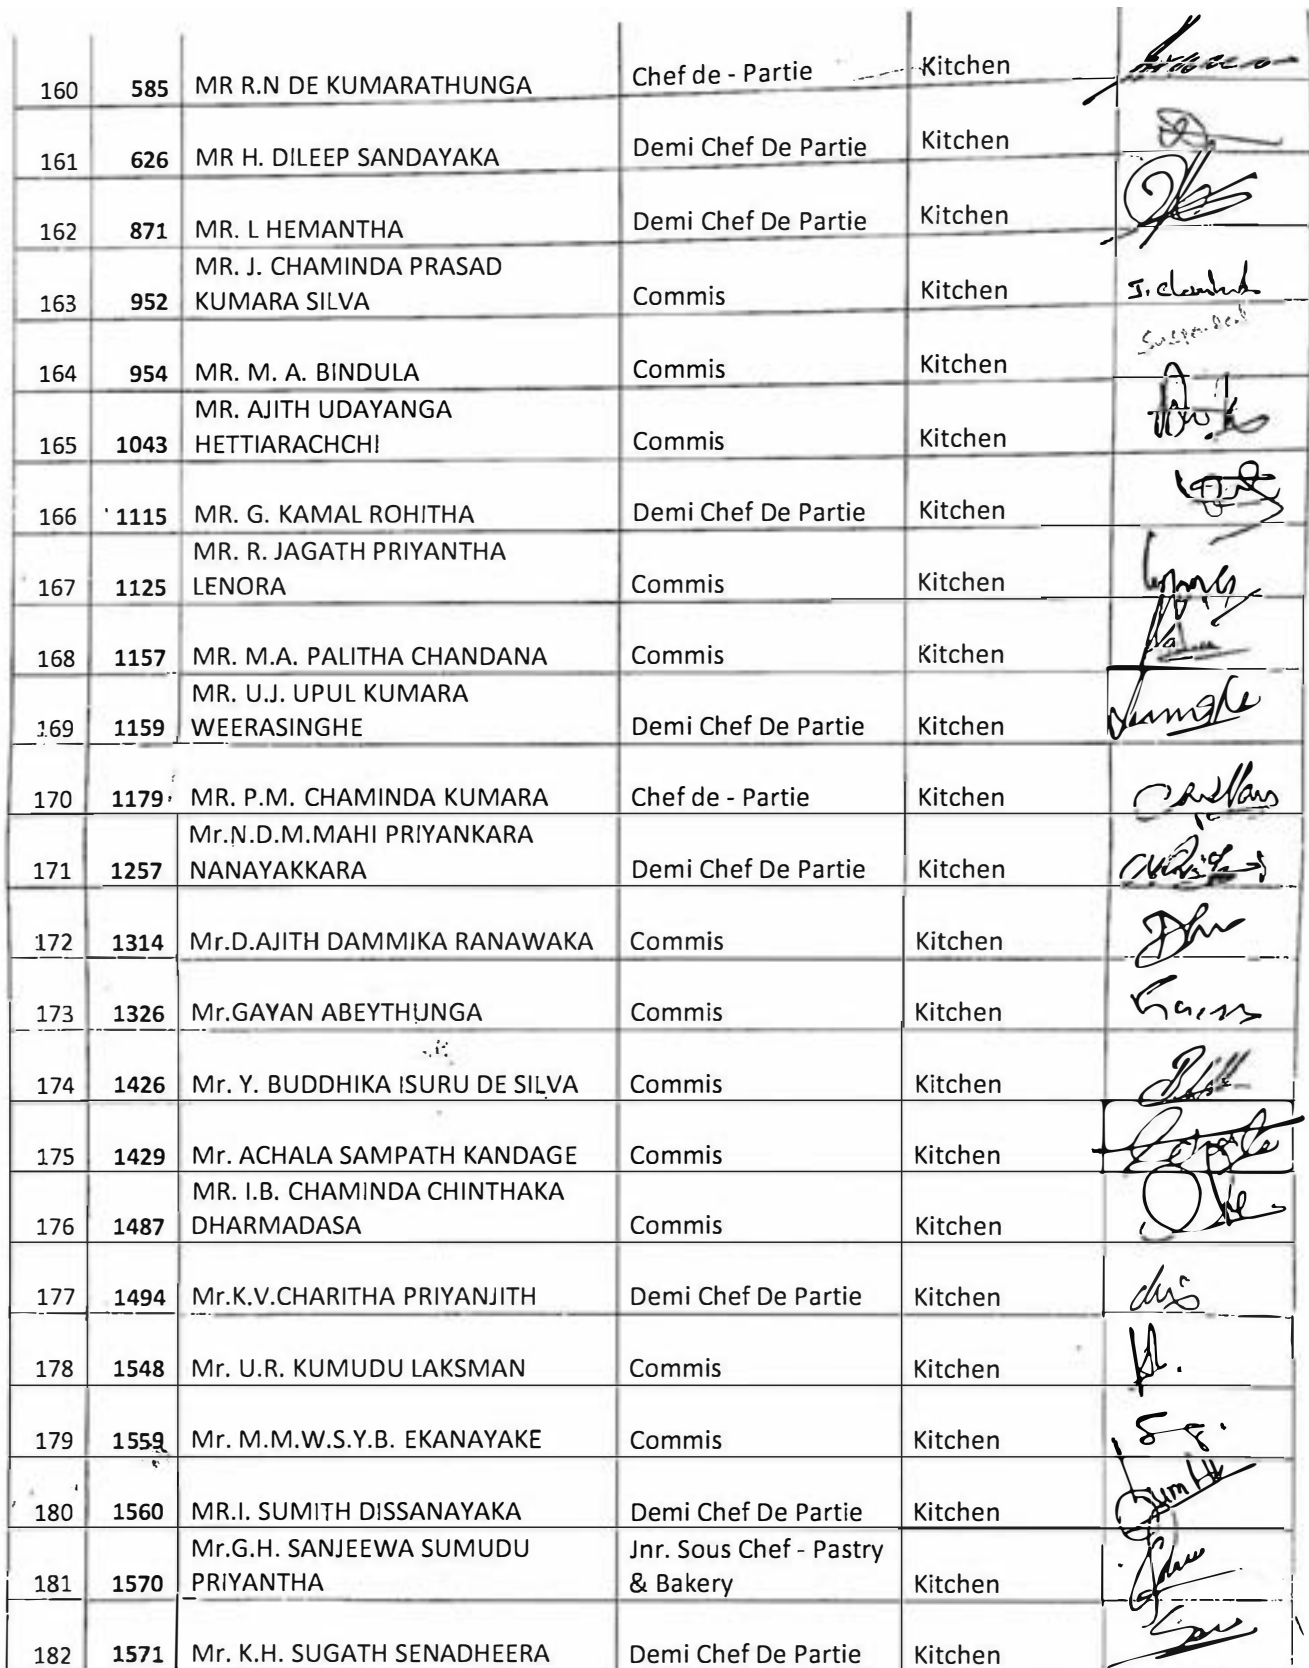 160 585 MR R.N DE KUMARATHUNGA Chef de - Partie Kitchen
161 626 MR H. DILEEP SANDAYAKA Demi Chef De Partie Kitchen
162 871 MR. L HEMANTHA Demi Chef De Partie Kitchen
MR. J. CHAMINDA PRASAD
163 952 KUMARA SILVA Commis Kitchen
Suspended
164 954 MR. M. A. BINDULA Commis Kitchen
MR. AJITH UDAYANGA
165 1043 HETTIARACHCHI Commis Kitchen
166 1115 MR. G. KAMAL ROHITHA Demi Chef De Partie Kitchen
MR. R. JAGATH PRIYANTHA
167 1125 LENORA Commis Kitchen
168 1157 MR. M.A. PALITHA CHANDANA Commis Kitchen
MR. U.J. UPUL KUMARA
169 1159 WEERASINGHE Demi Chef De Partie Kitchen
170 1179 MR. P.M. CHAMINDA KUMARA Chef de - Partie Kitchen
Mr.N.D.M.MAHI PRIYANKARA
171 1257 NANAYAKKARA Demi Chef De Partie Kitchen
172 1314 Mr.D.AJITH DAMMIKA RANAWAKA Commis Kitchen
173 1326 Mr.GAYAN ABEYTHUNGA Commis Kitchen
174 1426 Mr. Y. BUDDHIKA ISURU DE SILVA Commis Kitchen
175 1429 Mr. ACHALA SAMPATH KANDAGE Commis Kitchen
MR. I.B. CHAMINDA CHINTHAKA
176 1487 DHARMADASA Commis Kitchen
177 1494 Mr.K.V.CHARITHA PRIYANJITH Demi Chef De Partie Kitchen
178 1548 Mr. U.R. KUMUDU LAKSMAN Commis Kitchen
179 1559 Mr. M.M.W.S.Y.B. EKANAYAKE Commis Kitchen
180 1560 MR.I. SUMITH DISSANAYAKA Demi Chef De Partie Kitchen
Mr.G.H. SANJEEWA SUMUDU Jnr. Sous Chef - Pastry
181 1570 PRIYANTHA & Bakery Kitchen
182 1571 Mr. K.H. SUGATH SENADHEERA Demi Chef De Partie Kitchen